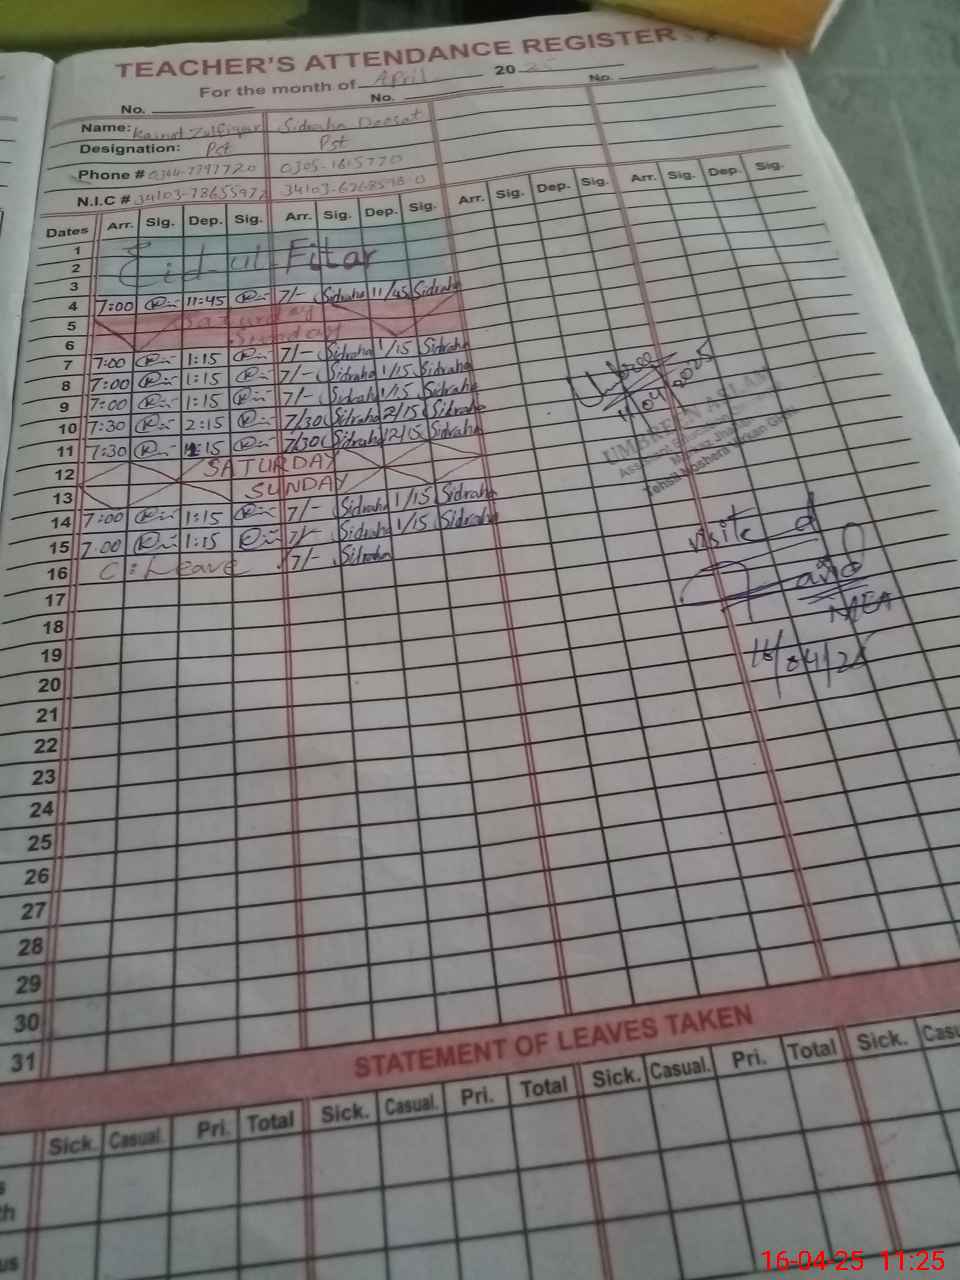 TEACHER'S ATTENDANCE REGISTER
For the month of April 20 25
No. No. No.
Name: Kainat Zulfiqar Sidraha Doosat
Designation: Pst Pst
Phone # 0344-7797720 0305-1615770
N.I.C # 34103-7865597
Dates Arr. Sig. Dep. Sig. Arr. Sig. Dep. Sig. Arr. Sig. Dep. Sig. Arr. Sig. Dep. Sig.
1
2 Eid-ul-Fitar
3
4 7:00 11:45 7/- Sidraha 11/45 Sidraha
5 Saturday
6 Sunday
7 7:00 1:15 7/- Sidraha 1/15 Sidraha
8 7:00 1:15 7/- Sidraha 1/15 Sidraha
9 7:00 1:15 7/- Sidraha 1/15 Sidraha
10 7:30 2:15 7/30 Sidraha 2/15 Sidraha
11 7:30 15 7/30 Sidraha 12/15 Sidraha
12 SATURDAY
13 SUNDAY
14 7:00 1:15 7/- Sidraha 1/15 Sidraha
15 7:00 1:15 7/- Sidraha 1/15 Sidraha
16 C:Leave 7/- Sidraha
17
18
19
20
21
22
23
24
25
26
27
28
29
30
31
11/04/2025
UMBREEN ASLAM
Tehsil Noshera Virkan
visited
MEA
16/04/25
STATEMENT OF LEAVES TAKEN
Sick. Casual. Pri. Total Sick. Casual. Pri. Total Sick. Casual. Pri. Total Sick. Casu
16-04-25 11:25